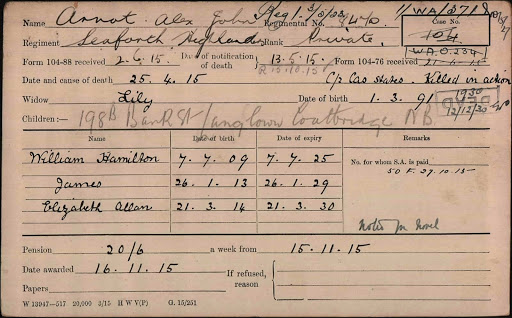 Name Arnot Alex John Reg 1. 3/5/03 11/WA/3718
Regiment Seaforth Highland Regimental No. 9470 Case No.
Rank Private. 104
W.A.O.234
Form 104-88 received 2.6.15. Date of notification of death 13.5.15. Form 104-76 received 21.5.15
R 15.10.15
Date and cause of death 25.4.15 C/p Cas states. Killed in action
Widow Lily Date of birth 1.3.91 1930
12/12/30
Children:— 198B Bank St Langloan Coatbridge NB
Name Date of birth Date of expiry Remarks
William Hamilton 7.7.09 7.7.25 No. for whom S.A. is paid
50 F. 27.10.15
James 26.1.13 26.1.29
Elizabeth Allan 21.3.14 21.3.30
Pension 20/6 a week from 15.11.15
Date awarded 16.11.15 If refused, reason
Papers
W 13947—517 20,000 3/15 H W V(P) G. 15/251